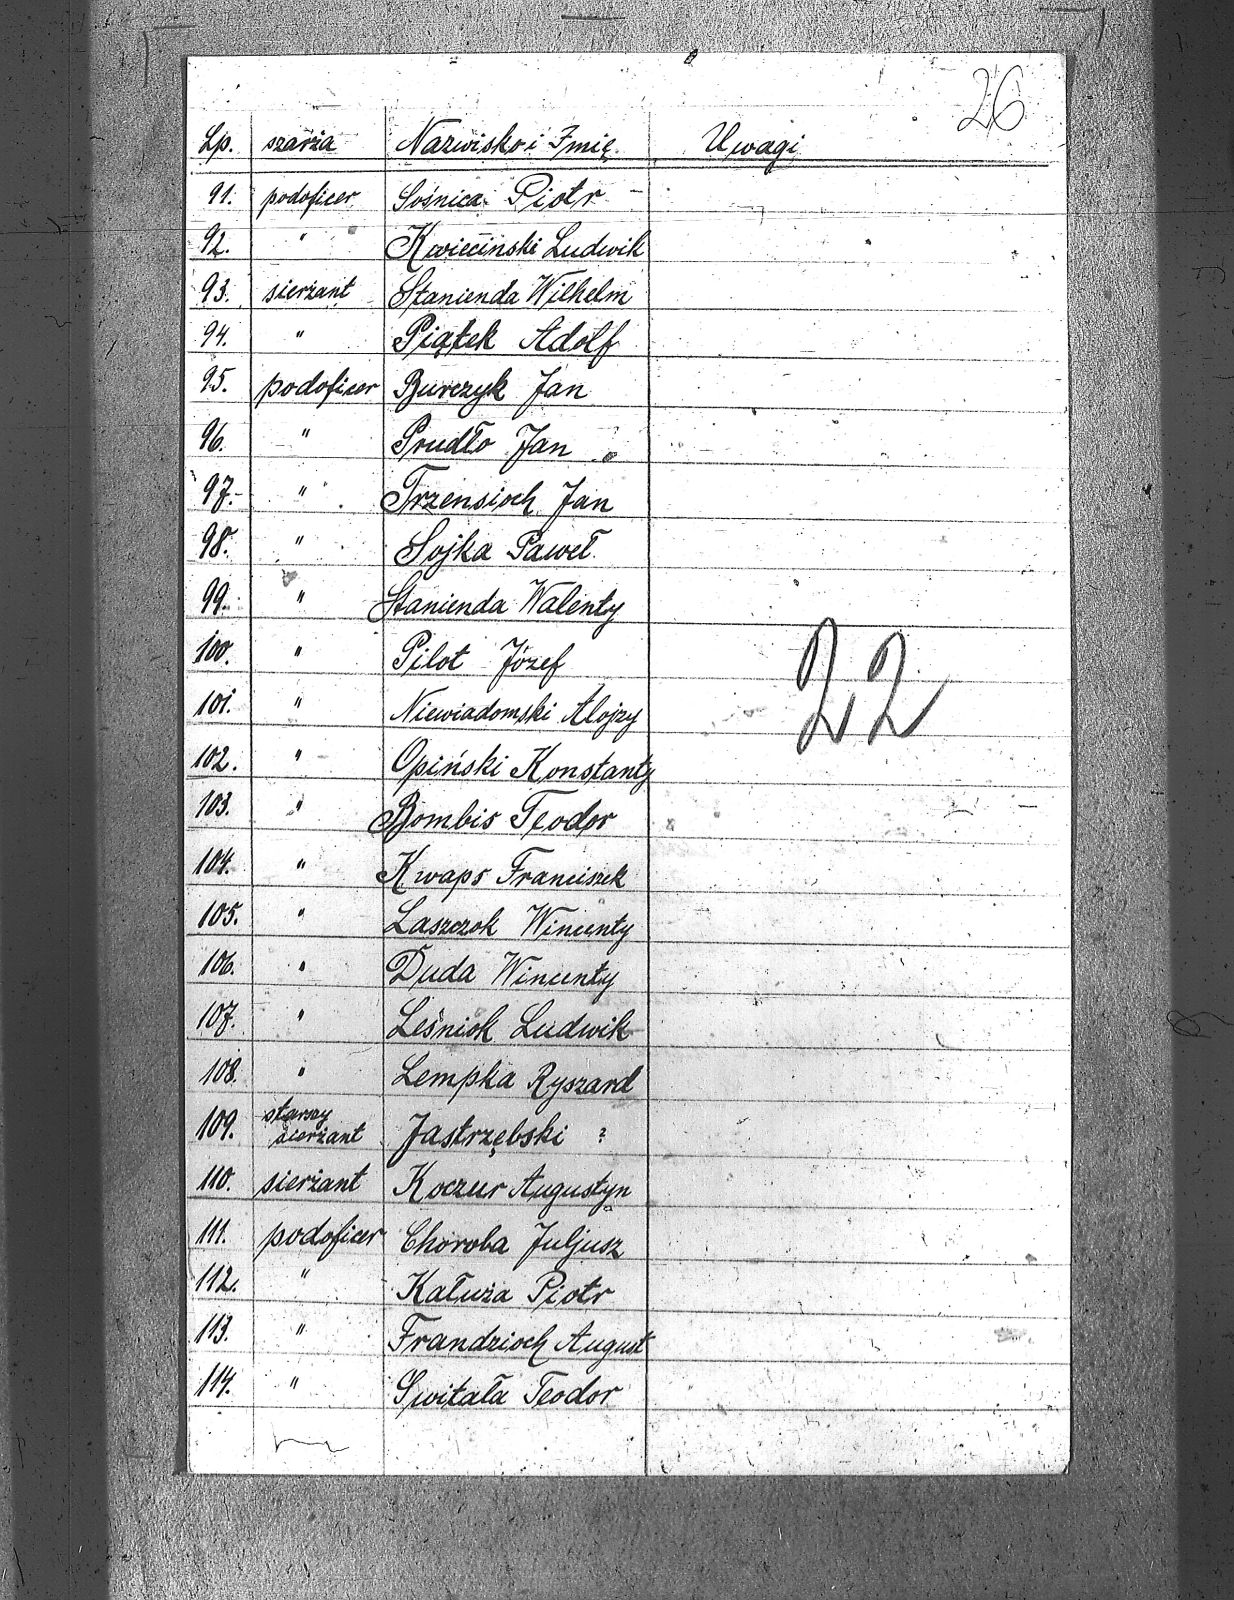 26
Lp. szarża Nazwisko i Imię Uwagi
91. podoficer Sośnica Piotr
92. " Kwieciński Ludwik
93. sierżant Stanienda Wilhelm
94. " Piątek Adolf
95. podoficer Burczyk Jan
96. " Prudło Jan
97. " Trzensioch Jan
98. " Sojka Paweł
99. " Stanienda Walenty
100. " Pilot Józef
22
101. " Niewiadomski Alojzy
102. " Opiński Konstanty
103. " Bombis Teodor
104. " Kwaps Franciszek
105. " Laszczok Wincenty
106. " Duda Wincenty
107. " Leśniok Ludwik
108. " Lempka Ryszard
109. starszy sierżant Jastrzębski ?
110. sierżant Koczur Augustyn
111. podoficer Choroba Juljusz
112. " Kałuża Piotr
113. " Frandzioch August
114. " Świtała Teodor